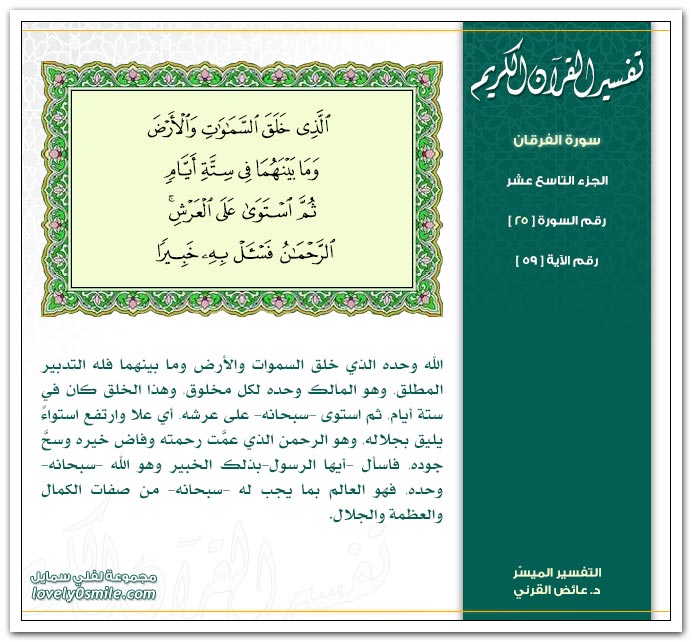 تفسير القرآن الكريم
سورة الفرقان
الجزء التاسع عشر
رقم السورة [ ٢٥ ]
رقم الآية [ ٥٩ ]
ٱلَّذِى خَلَقَ ٱلسَّمَٰوَٰتِ وَٱلْأَرْضَ
وَمَا بَيْنَهُمَا فِى سِتَّةِ أَيَّامٍ
ثُمَّ ٱسْتَوَىٰ عَلَى ٱلْعَرْشِ ۚ
ٱلرَّحْمَٰنُ فَسْـَٔلْ بِهِۦ خَبِيرًا
الله وحده الذي خلق السموات والأرض وما بينهما فله التدبير
المطلق، وهو المالك وحده لكل مخلوق، وهذا الخلق كان في
ستة أيام، ثم استوى -سبحانه- على عرشه، أي علا وارتفع استواءً
يليق بجلاله، وهو الرحمن الذي عمَّت رحمته وفاض خيره وسحَّ
جوده، فاسأل -أيها الرسول-بذلك الخبير وهو الله -سبحانه-
وحده، فهو العالم بما يجب له -سبحانه- من صفات الكمال
والعظمة والجلال.
التفسير الميسّر
د. عائض القرني
مجموعة لفلي سمايل
lovely0smile.com